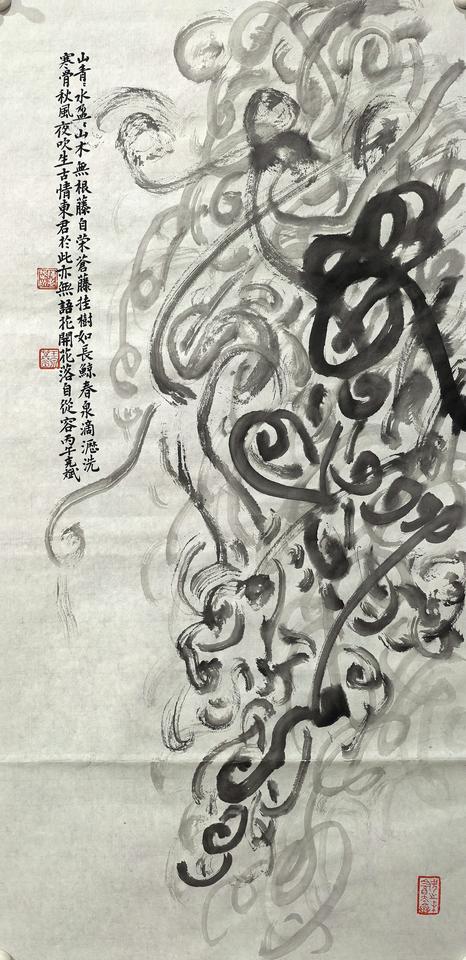 山青々水盈々山木無根藤自荣蒼藤挂樹如長鯨春泉滴瀝洗
寒骨秋風夜吹生古情東君於此亦無語花開花落自從容丙午克斌